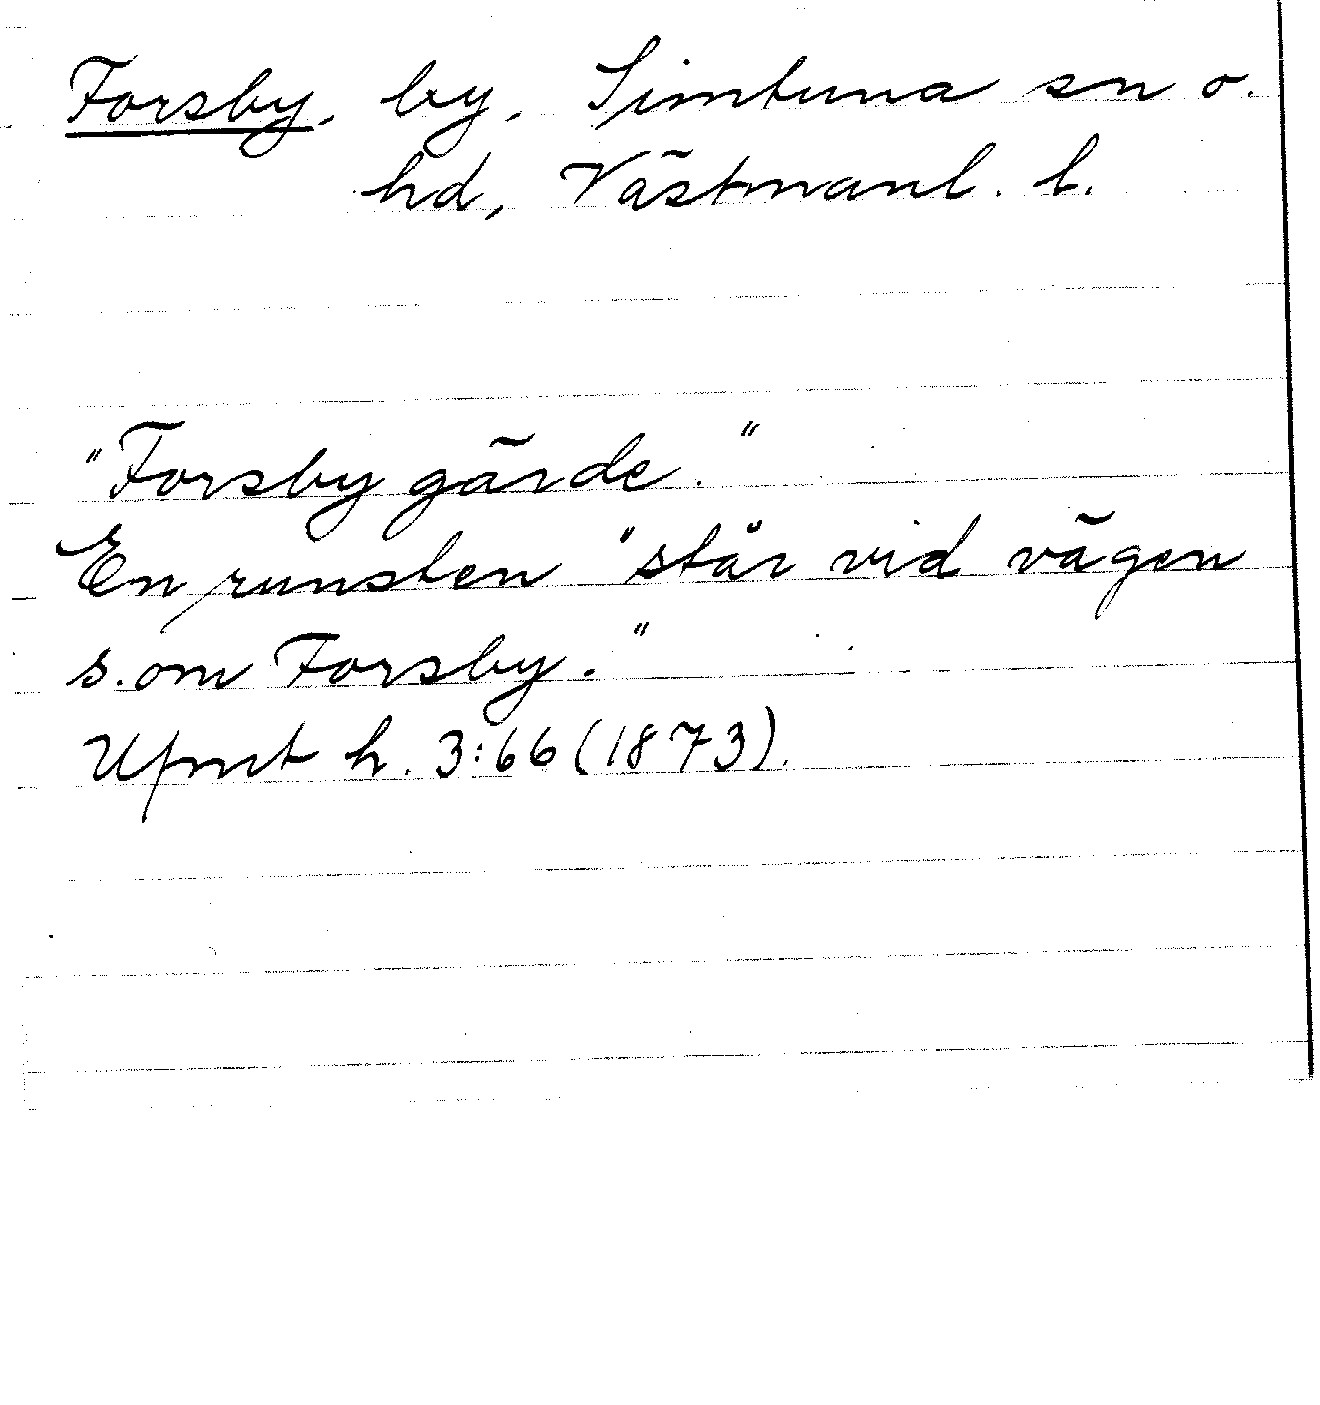 Forsby, by, Simtuna sn o.
hd, Västmanl. l.
"Forsby gärde."
En runsten "står vid vägen
s. om Forsby."
Ufmt h. 3:66 (1873).